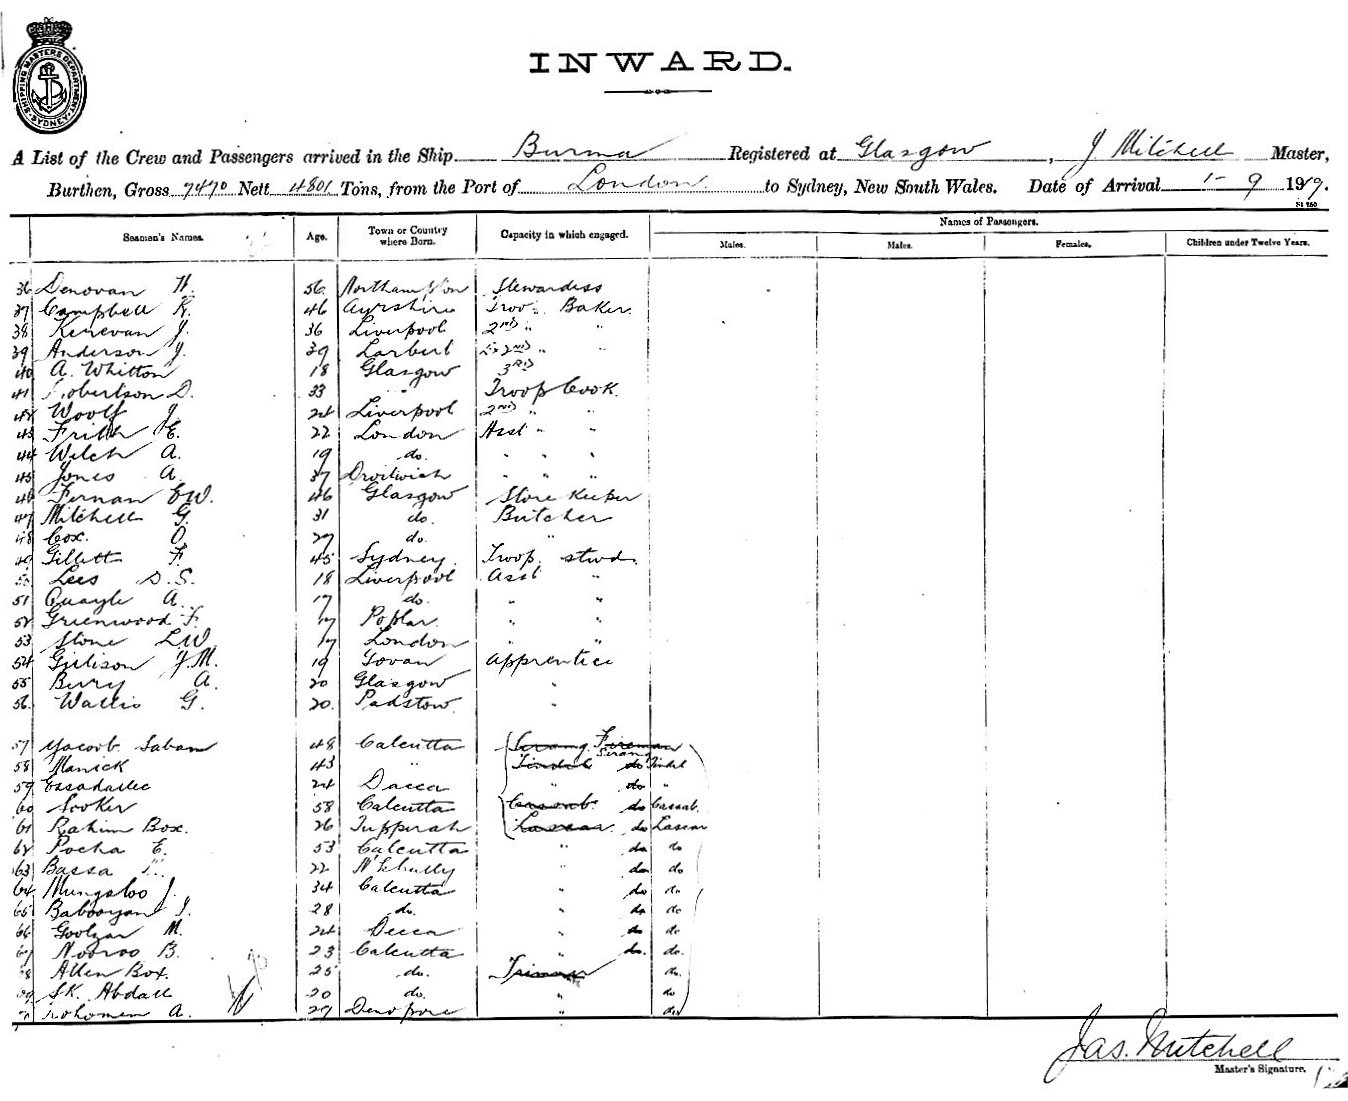 SHIPPING MASTERS DEPARTMENT SYDNEY
INWARD.
A List of the Crew and Passengers arrived in the Ship Burma Registered at Glasgow, J Mitchell Master,
Burthen, Gross 7470 Nett 4801 Tons, from the Port of London to Sydney, New South Wales. Date of Arrival 1-9 1919.
Names of Passengers.
Seamen's Names. Age. Town or Country where Born. Capacity in which engaged. Males. Males. Females. Children under Twelve Years.
36 Denovan H. 56 Northampton Stewardess
37 Campbell R. 46 Ayrshire Troop Baker
38 Kerevan J. 36 Liverpool 2nd " "
39 Anderson J. 39 Larbert 2nd " "
40 A. Whitton 18 Glasgow 3rd
41 Robertson D. 33 " Troop Cook
42 Woolf J. 24 Liverpool 2nd " "
43 Frith E. 22 London Asst " "
44 Welch A. 19 do. " " "
45 Jones A. 37 Droitwich " " "
46 Fernan E W. 46 Glasgow Store Keeper
47 Mitchell G. 31 do. Butcher
48 Cox. O. 27 do. "
49 Gillett F. 45 Sydney Troop stwd.
50 Lees D. S. 18 Liverpool Asst "
51 Quayle A. 17 do. " "
52 Greenwood F. 17 Poplar " "
53 Stone L.W. 17 London " "
54 J.M. 19 Govan apprentice
55 Bury A. 20 Glasgow "
56. Wallis G. 20. Padstow "
57 Yacoob 48 Calcutta Serang Fireman Serang
58 Manick 43 " Tindal do Tindal
59 24 Dacca " do "
60 Sooker 58 Calcutta Cassab do Cassab.
61 Rahim Box. 26 Tipperah Lascar do Lascar
62 Pocha E. 53 Calcutta " do do
63 Bassa 22 " do do
64 Mungsloo J. 34 Calcutta " do do
65 Babooyan J. 28 do. " do do
66 Goolzar M. 24 Decca " do do
67 Nooroo B. 23 Calcutta " do. do.
68 Allen Box. 25 do. Trimmer do.
69 S.K. Abdall 20 do. " do
70 A. 29 " do
Jas. Mitchell
Master's Signature.